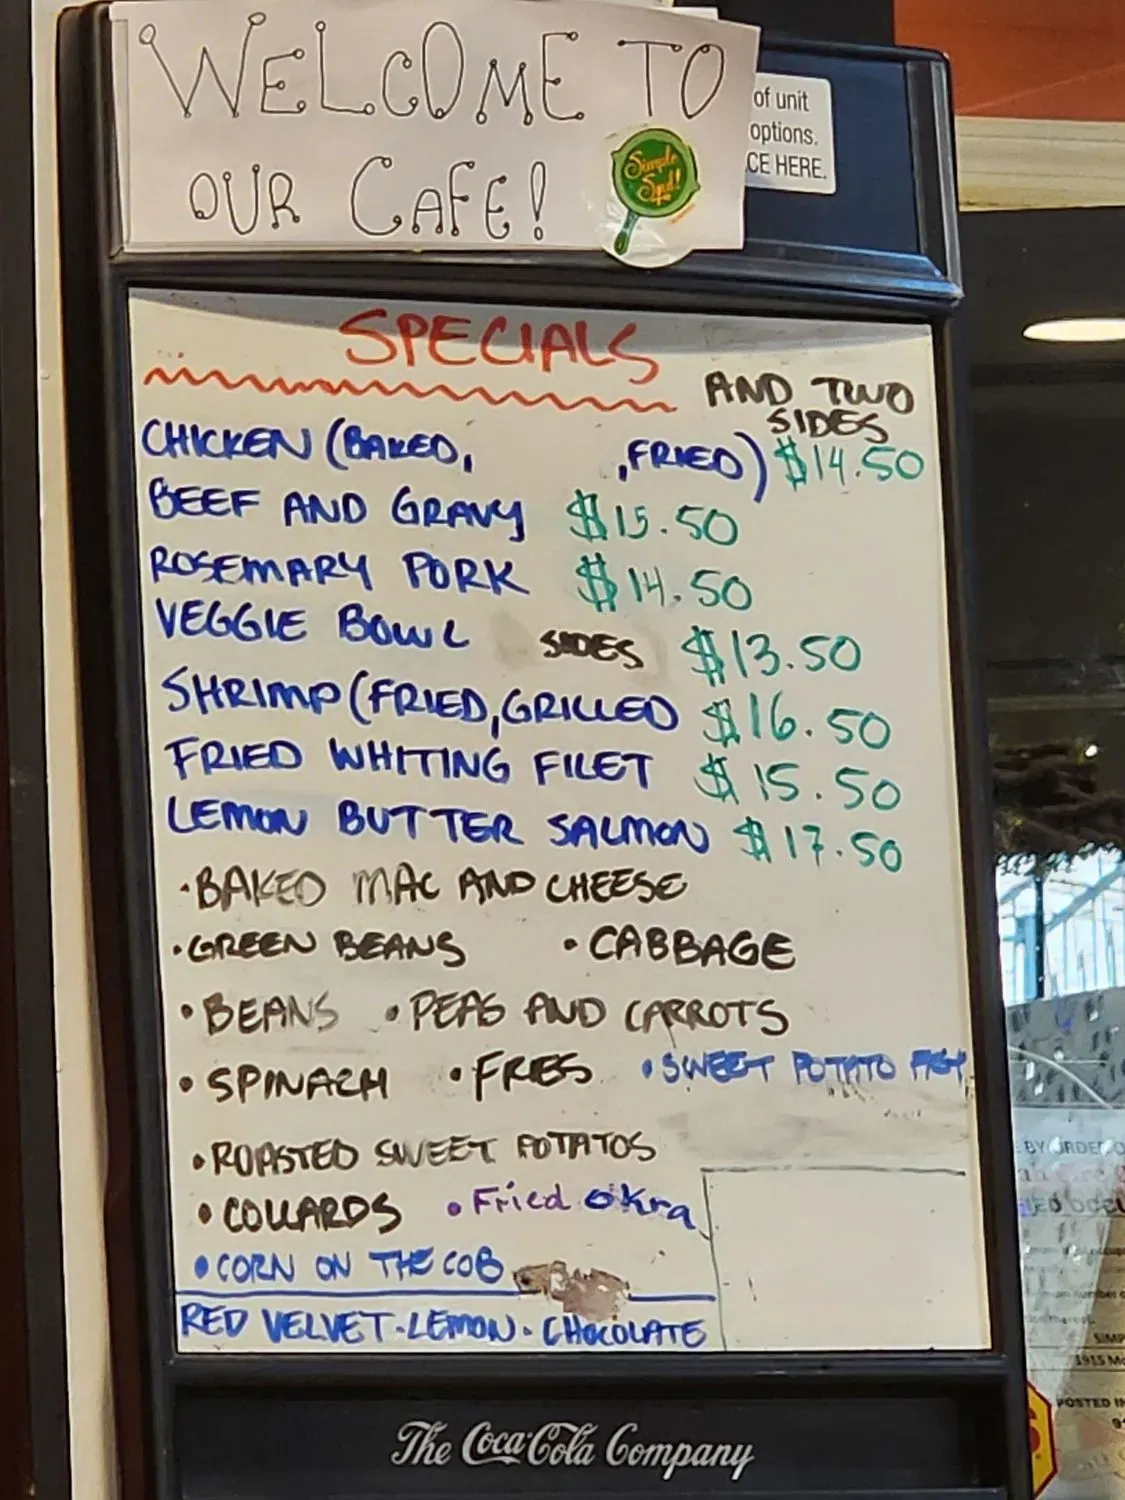 WELCOME TO
OUR CAFE!
Simple
Soul!
of unit
options.
CE HERE.
SPECIALS
AND TWO
SIDES
CHICKEN (BAKED, ,FRIED) $14.50
BEEF AND GRAVY $15.50
ROSEMARY PORK $14.50
VEGGIE BOWL SIDES $13.50
SHRIMP (FRIED, GRILLED $16.50
FRIED WHITING FILET $15.50
LEMON BUTTER SALMON $17.50
•BAKED MAC AND CHEESE
•GREEN BEANS •CABBAGE
•BEANS •PEAS AND CARROTS
•SPINACH •FRIES •SWEET POTATO
•ROASTED SWEET POTATOS
•COLLARDS •Fried okra
•CORN ON THE COB
RED VELVET·LEMON·CHOCOLATE
The Coca-Cola Company
BY ORDER O
SIMP
1915 Mo
POSTED IN